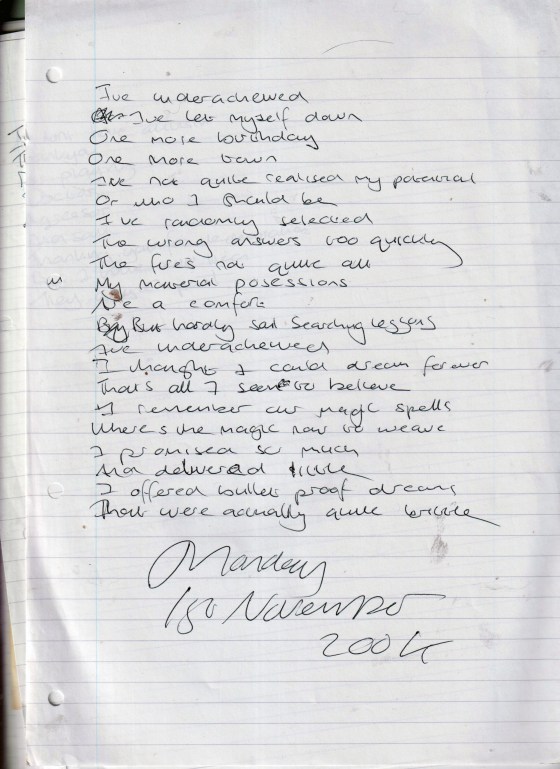 I've underacheived
I've let myself down
One more birthday
One more town
I've not quite realised my potential
Or who I should be
I've randomly selected
The wrong answers too quickly
The fires not quite out
My material posessions
Are a comfort
But hardly soul searching lessons
I've underacheived
I thought I could dream forever
That's all I seem to believe
I remember our magic spells
Where's the magic now to weave
I promised so much
And delivered little
I offered bullet proof dreams
That were actually quite brittle
Monday
1st November
2004